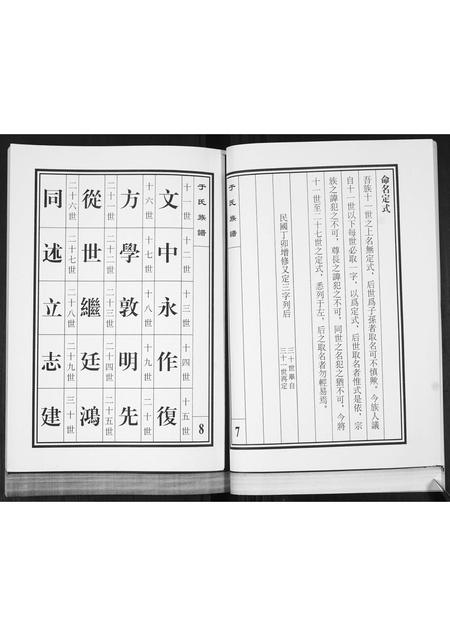 命名定式
吾族十一世之上名無定式，后世爲子孫者取名可不慎歟。今族人議
自十一世以下每世必取一字，以爲定式，后世取名者惟式是依，宗
族之諱犯之不可，尊長之諱犯之不可，同世之名犯之猶不可，今將
十一世至二十七世之定式，悉列于左，后之取名者勿輕易焉。
民國丁卯增修又定三字列后
三十世畢自
三十一世再定
于氏族譜
7
于氏族譜
8
十一世 十二世 十三世 十四世 十五世
文中永作復
十六世 十七世 十八世 十九世 二十世
方學敦明先
二十一世 二十二世 二十三世 二十四世 二十五世
從世繼廷鴻
二十六世 二十七世 二十八世 二十九世 三十世
同述立志建